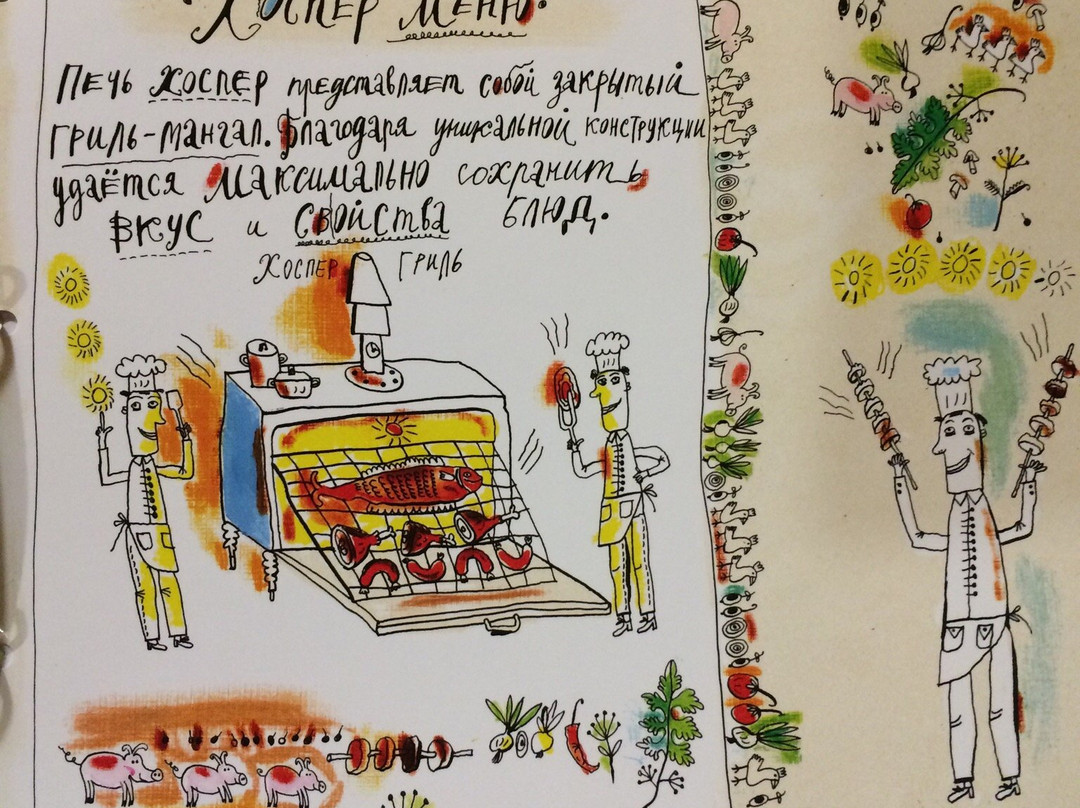 Хоспер меню.
Печь Хоспер представляет собой закрытый
гриль-мангал. Благодаря уникальной конструкции
удаётся максимально сохранить
вкус и свойства блюд.
Хоспер гриль